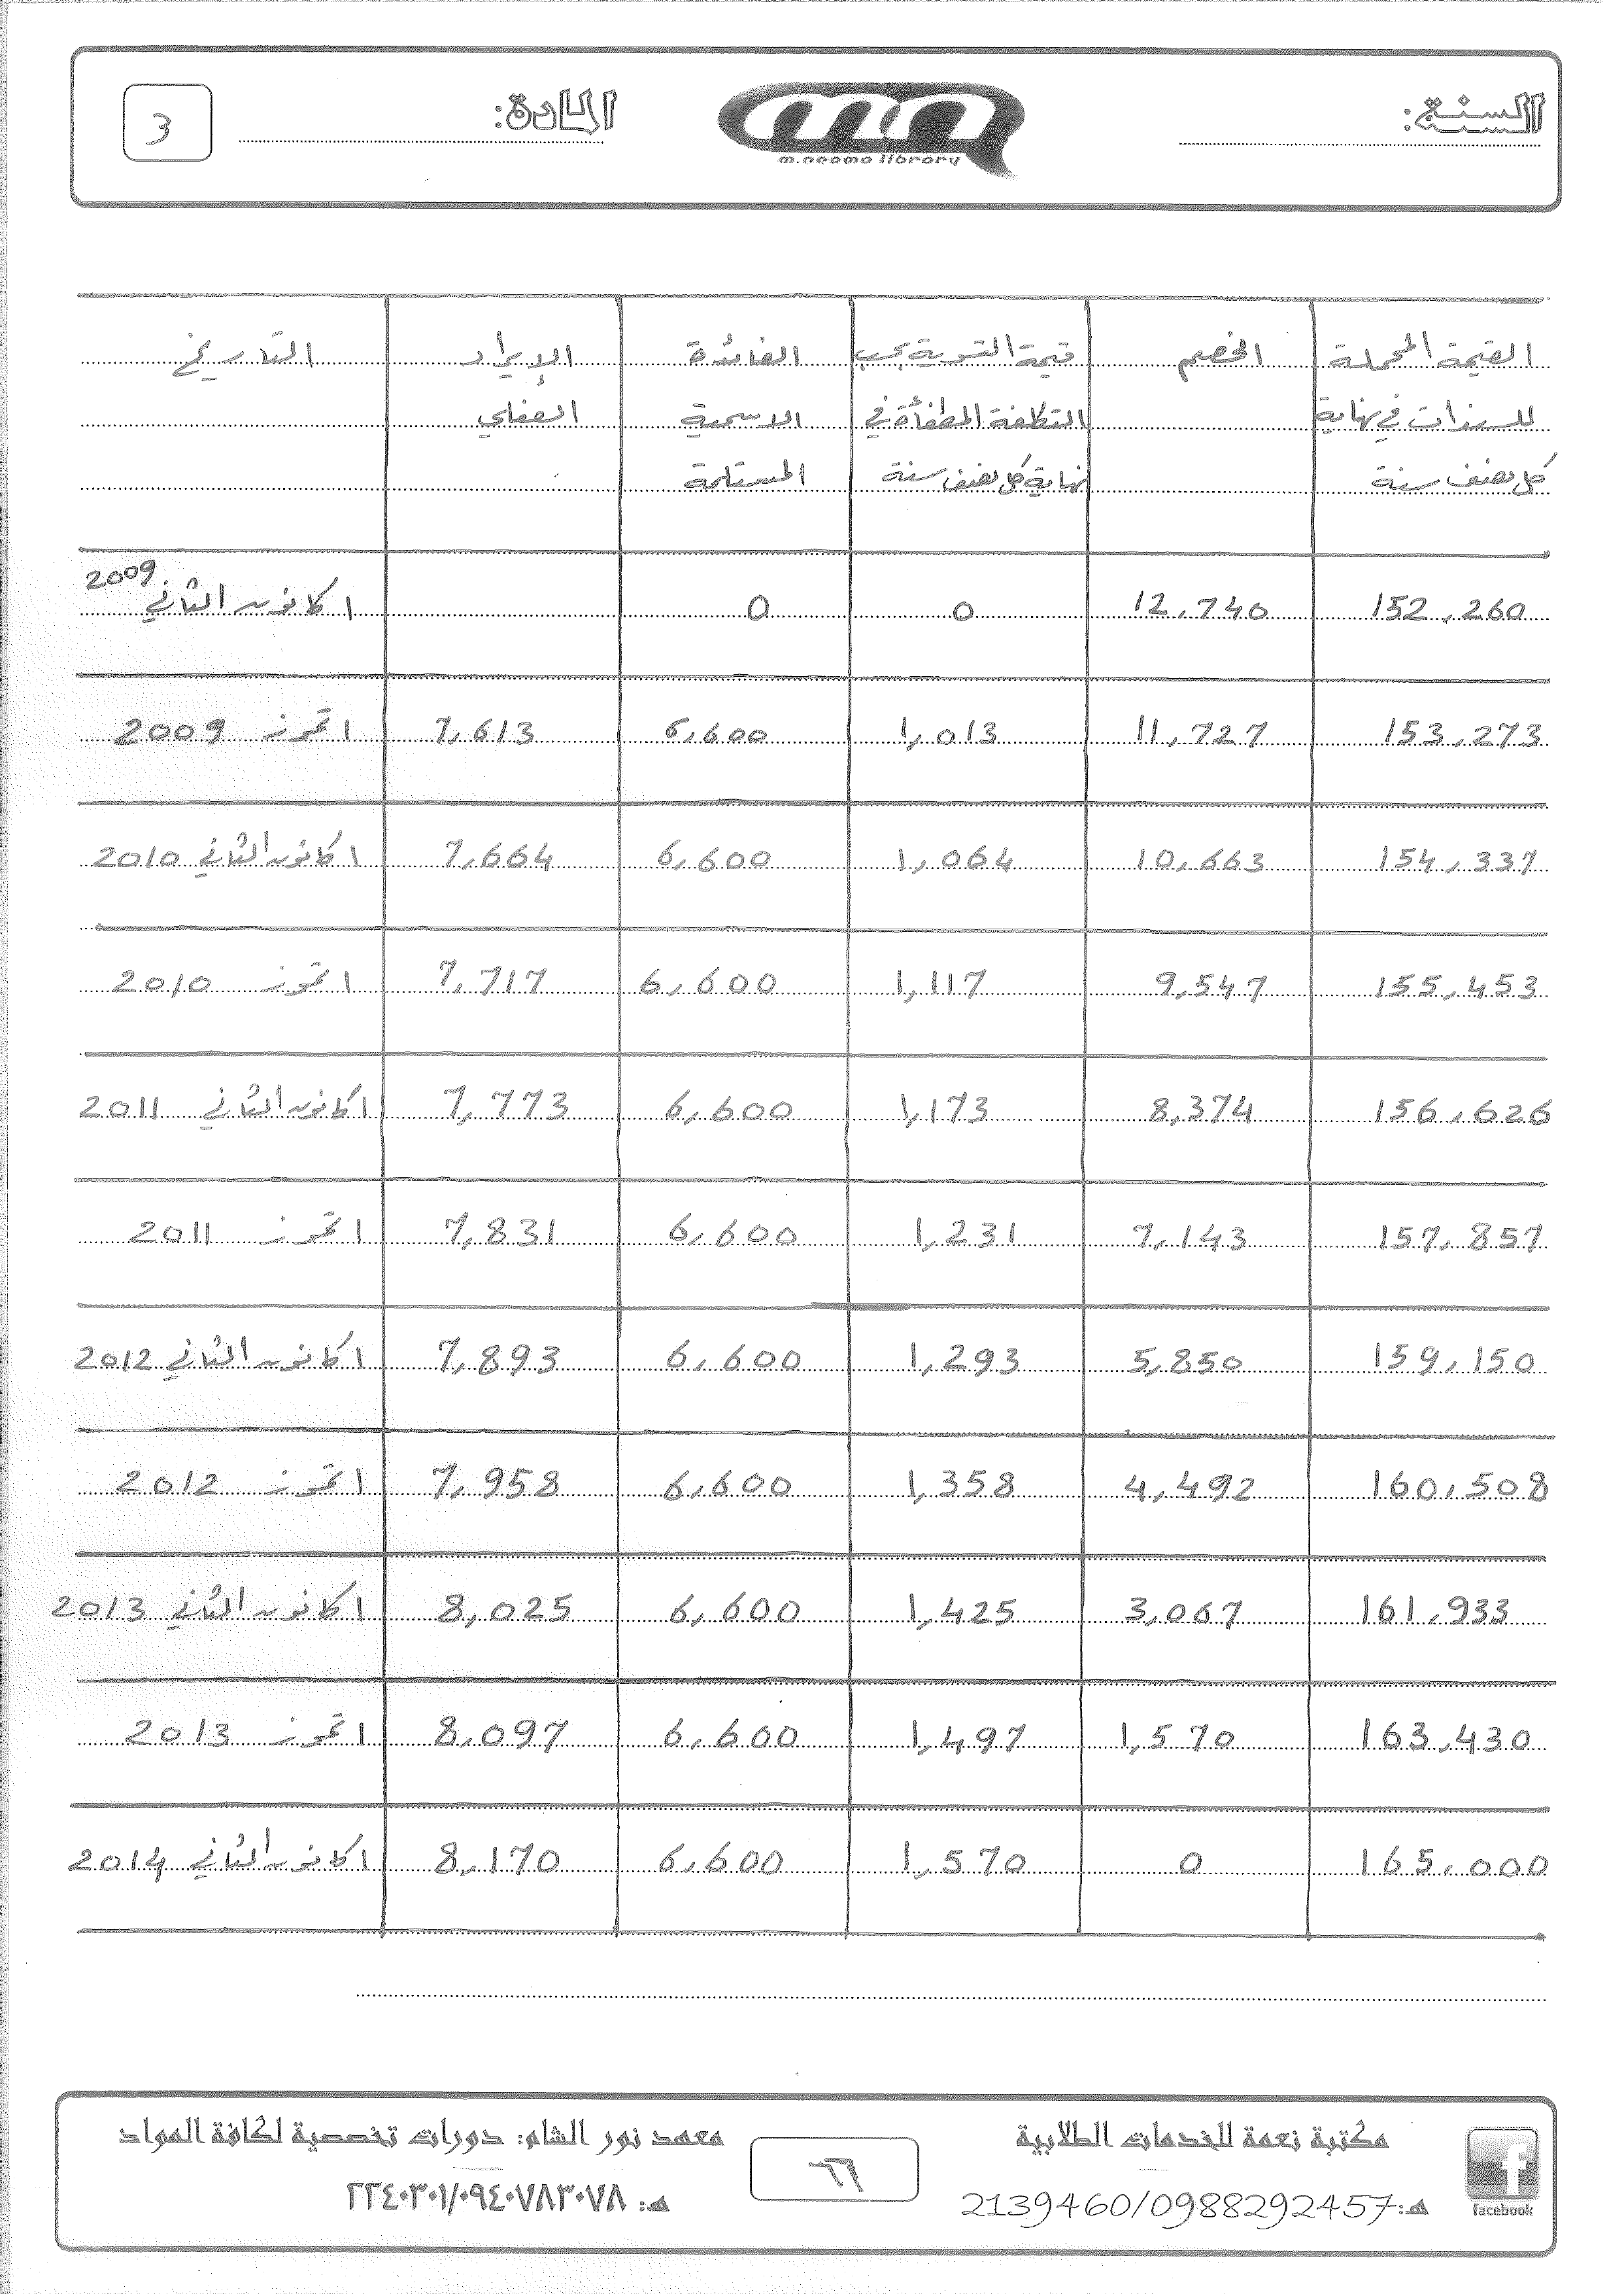 السنة:
m.neama library
المادة:
3
القيمة المحملة الخصم قيمة التسوية بحسب الفائدة الإيراد التاريخ
للسندات في نهاية التكلفة المطفأة في الاسمية الفعلي
كل نصف سنة نهاية كل نصف سنة المستلمة
152,260 12,740 0 0 1 كانون الثاني 2009
153,273 11,727 1,013 6,600 7,613 1 تموز 2009
154,337 10,663 1,064 6,600 7,664 1 كانون الثاني 2010
155,453 9,547 1,117 6,600 7,717 1 تموز 2010
156,626 8,374 1,173 6,600 7,773 1 كانون الثاني 2011
157,857 7,143 1,231 6,600 7,831 1 تموز 2011
159,150 5,850 1,293 6,600 7,893 1 كانون الثاني 2012
160,508 4,492 1,358 6,600 7,958 1 تموز 2012
161,933 3,067 1,425 6,600 8,025 1 كانون الثاني 2013
163,430 1,570 1,497 6,600 8,097 1 تموز 2013
165,000 0 1,570 6,600 8,170 1 كانون الثاني 2014
facebook
مكتبة نعمة للخدمات الطلابية
هـ:2139460/0988292457
٦٦
معهد نور الشام: دورات تخصصية لكافة المواد
هـ: ٢٢٤٠٣٠١/٠٩٤٠٧٨٣٠٧٨